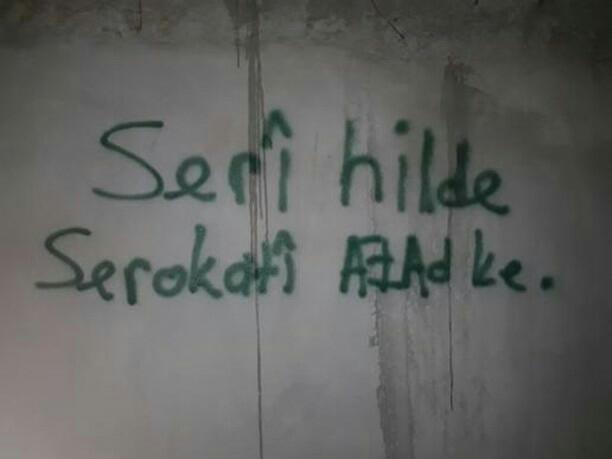 Serî hilde
Serokatî AZAd ke.